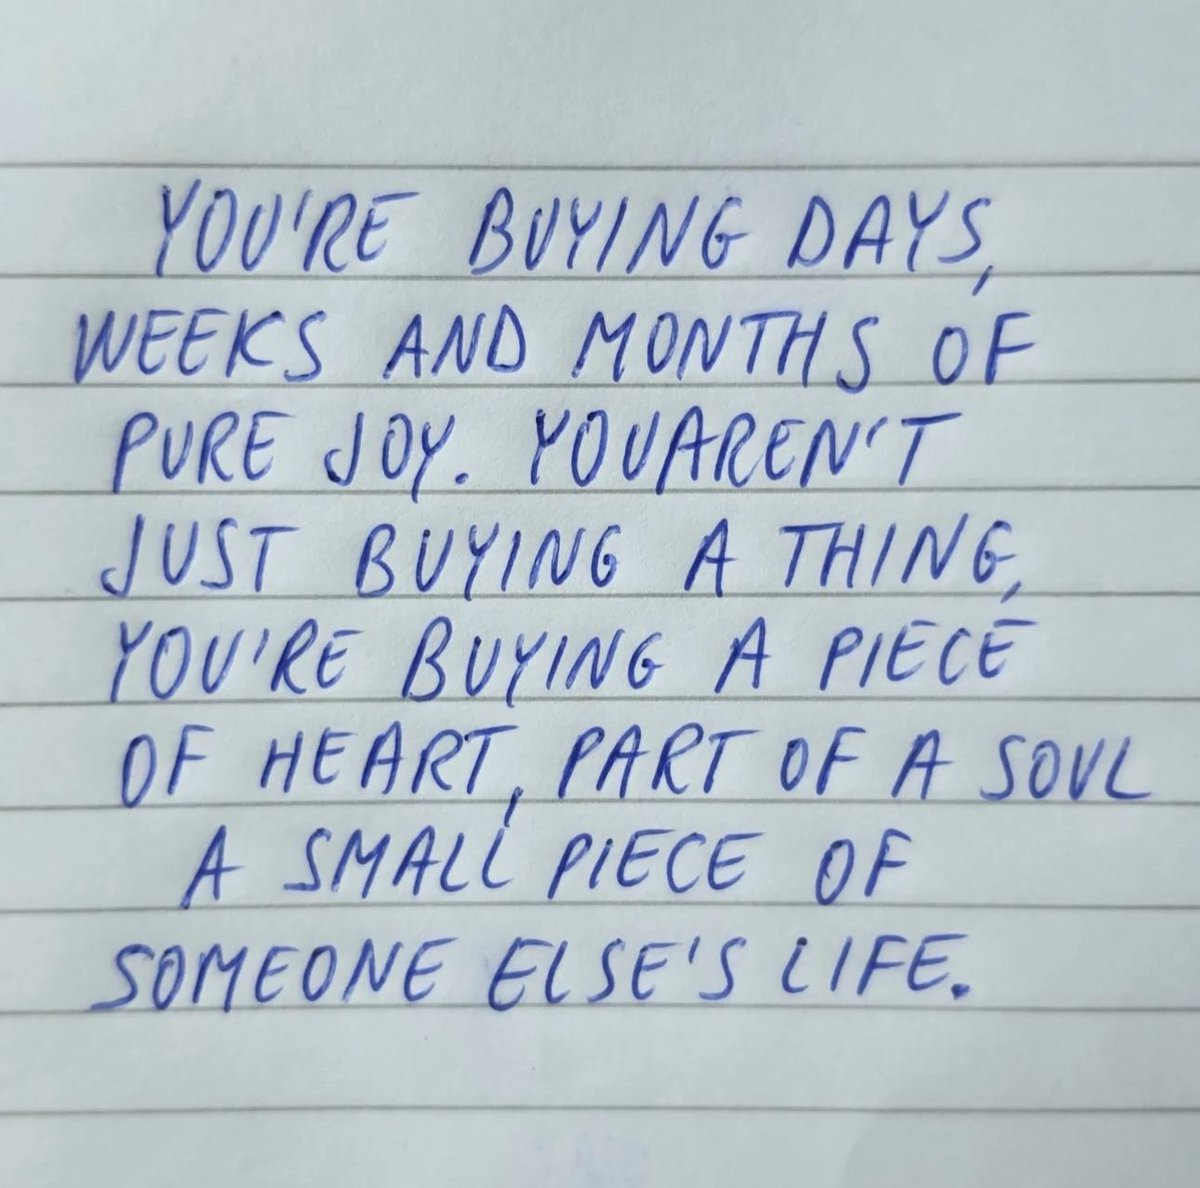 YOU'RE BUYING DAYS,
WEEKS AND MONTHS OF
PURE JOY. YOUAREN'T
JUST BUYING A THING,
YOU'RE BUYING A PIECE
OF HEART, PART OF A SOUL
A SMALL PIECE OF
SOMEONE ELSE'S LIFE.